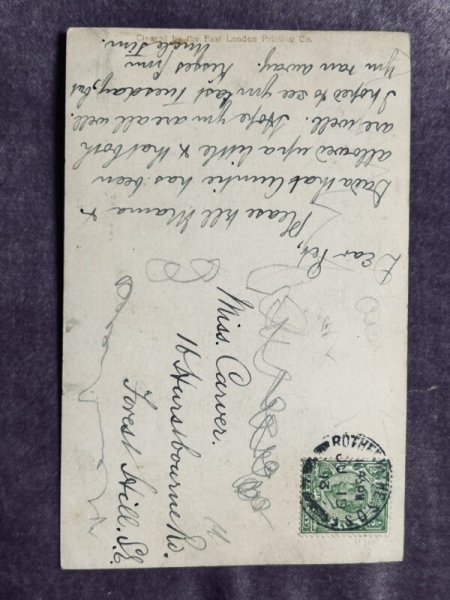 Cleared by the East London Printing Co.
Dear Pet,
Please tell Mama &
Dada that Auntie has been
allowed up a little & that both
are well. Hope you are all well.
I hoped to see you last Tuesday, but
you ran away. Kisses from
Uncle Jim.
Miss. Carver.
16 Hurstbourne Rd.
Forest Hill. S.E.